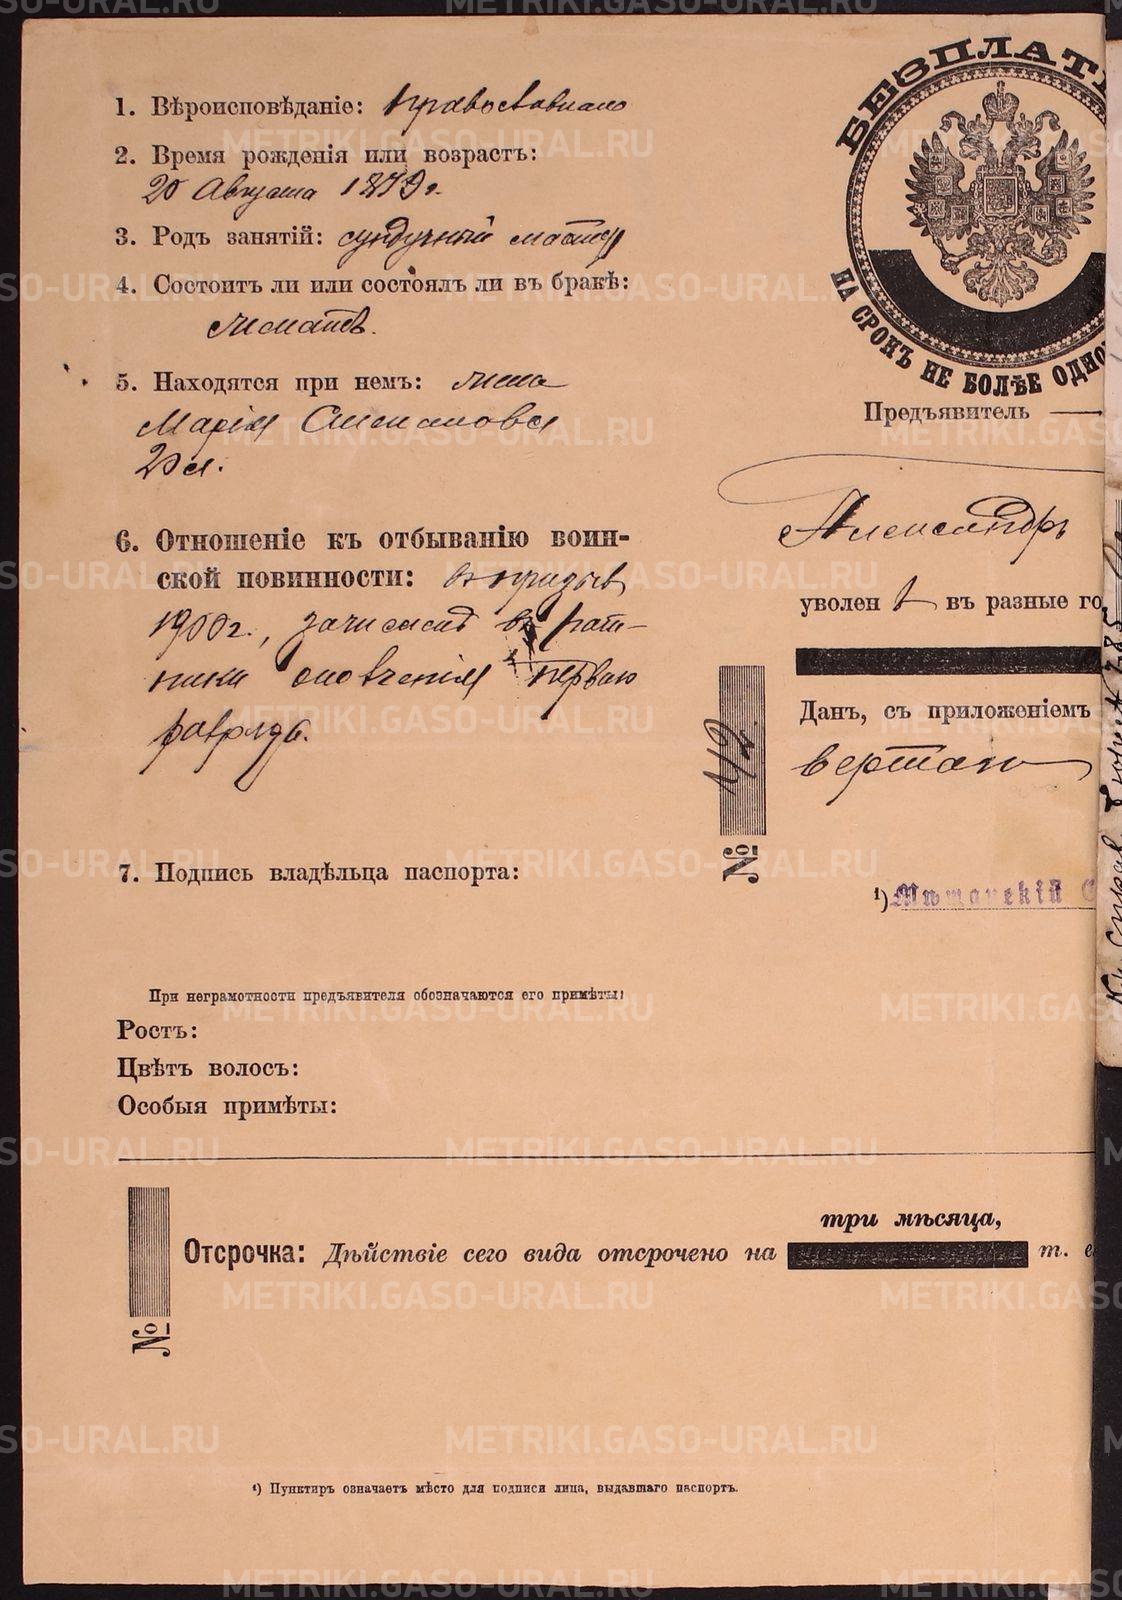 1. Вѣроисповѣданіе: православнаго
2. Время рожденія или возрастъ:
20 Августа 1879 г.
3. Родъ занятій: сундучный мастер
4. Состоитъ ли или состоялъ ли въ бракѣ:
женатъ.
5. Находятся при немъ: жена
Марія Степановна
20 л.
6. Отношеніе къ отбыванію воин-
ской повинности: въ призывъ
1900 г., зачисленъ въ рат-
ники ополченія перваго
разряда.
7. Подпись владѣльца паспорта:
При неграмотности предъявителя обозначаются его примѣты:
Ростъ:
Цвѣтъ волосъ:
Особыя примѣты:
БЕЗПЛАТ
НА СРОКЪ НЕ БОЛѢЕ ОДНО
Предъявитель
Александръ
уволен ъ въ разные го
Данъ, съ приложеніемъ
№ 112
1) Мѣщанскій С
три мѣсяца,
Отсрочка: Дѣйствіе сего вида отсрочено на т. е
№
1) Пунктиръ означаетъ мѣсто для подписи лица, выдавшаго паспортъ.
METRIKI.GASO-URAL.RU